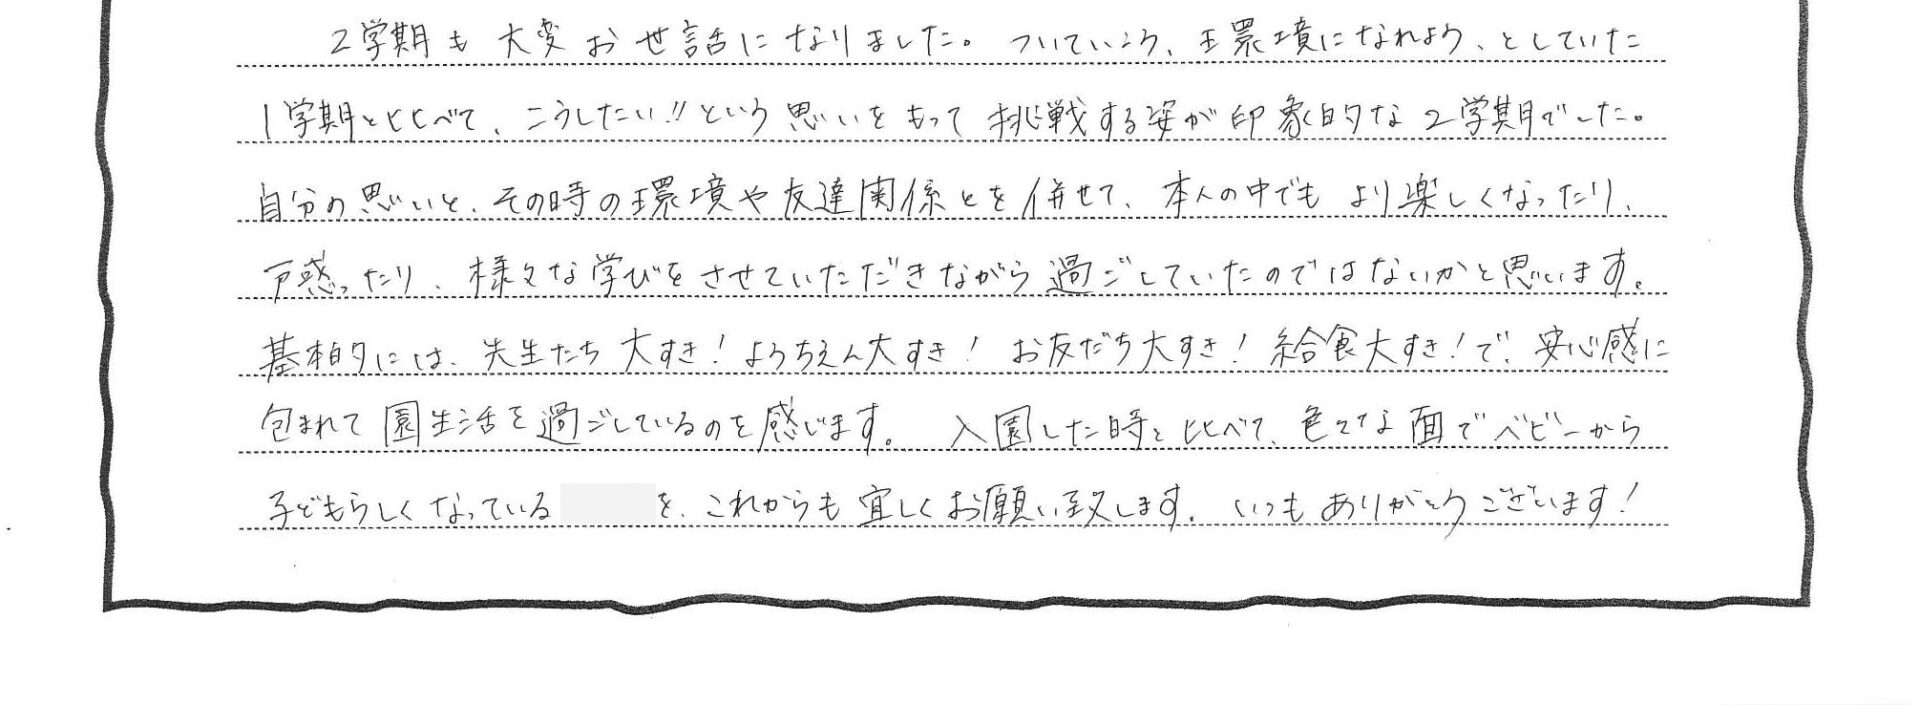 2学期も大変お世話になりました。ついていこう、環境になれよう、としていた
1学期と比べて、こうしたい!!という思いをもって挑戦する姿が印象的な2学期でした。
自分の思いと、その時の環境や友達関係とを併せて、本人の中でもより楽しくなったり、
戸惑ったり、様々な学びをさせていただきながら過ごしていたのではないかと思います。
基本的には、先生たち大すき!ようちえん大すき!お友だち大すき!給食大すき!で、安心感に
包まれて園生活を過ごしているのを感じます。入園した時と比べて、色々な面でベビーから
子どもらしくなっている を、これからも宜しくお願い致します。いつもありがとうございます!